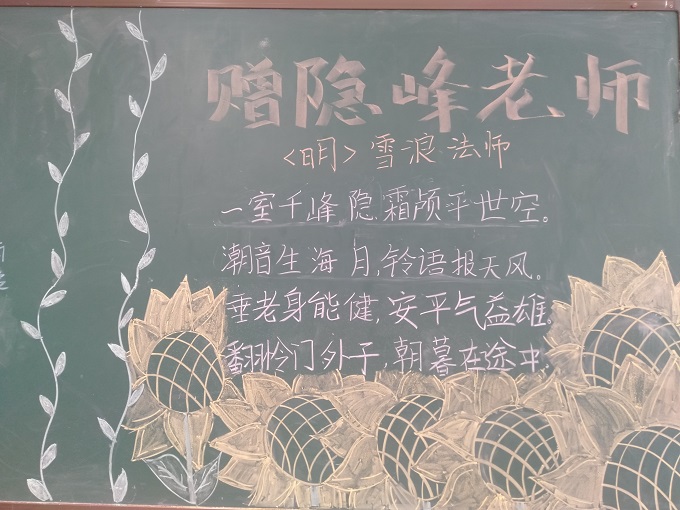 赠隐峰老师
<明> 雪浪法师
一室千峰隐霜颅平世空。
潮音生海月,铃语报天风。
垂老身能健,安平气益雄。
翻怜门外子,朝暮在途中。